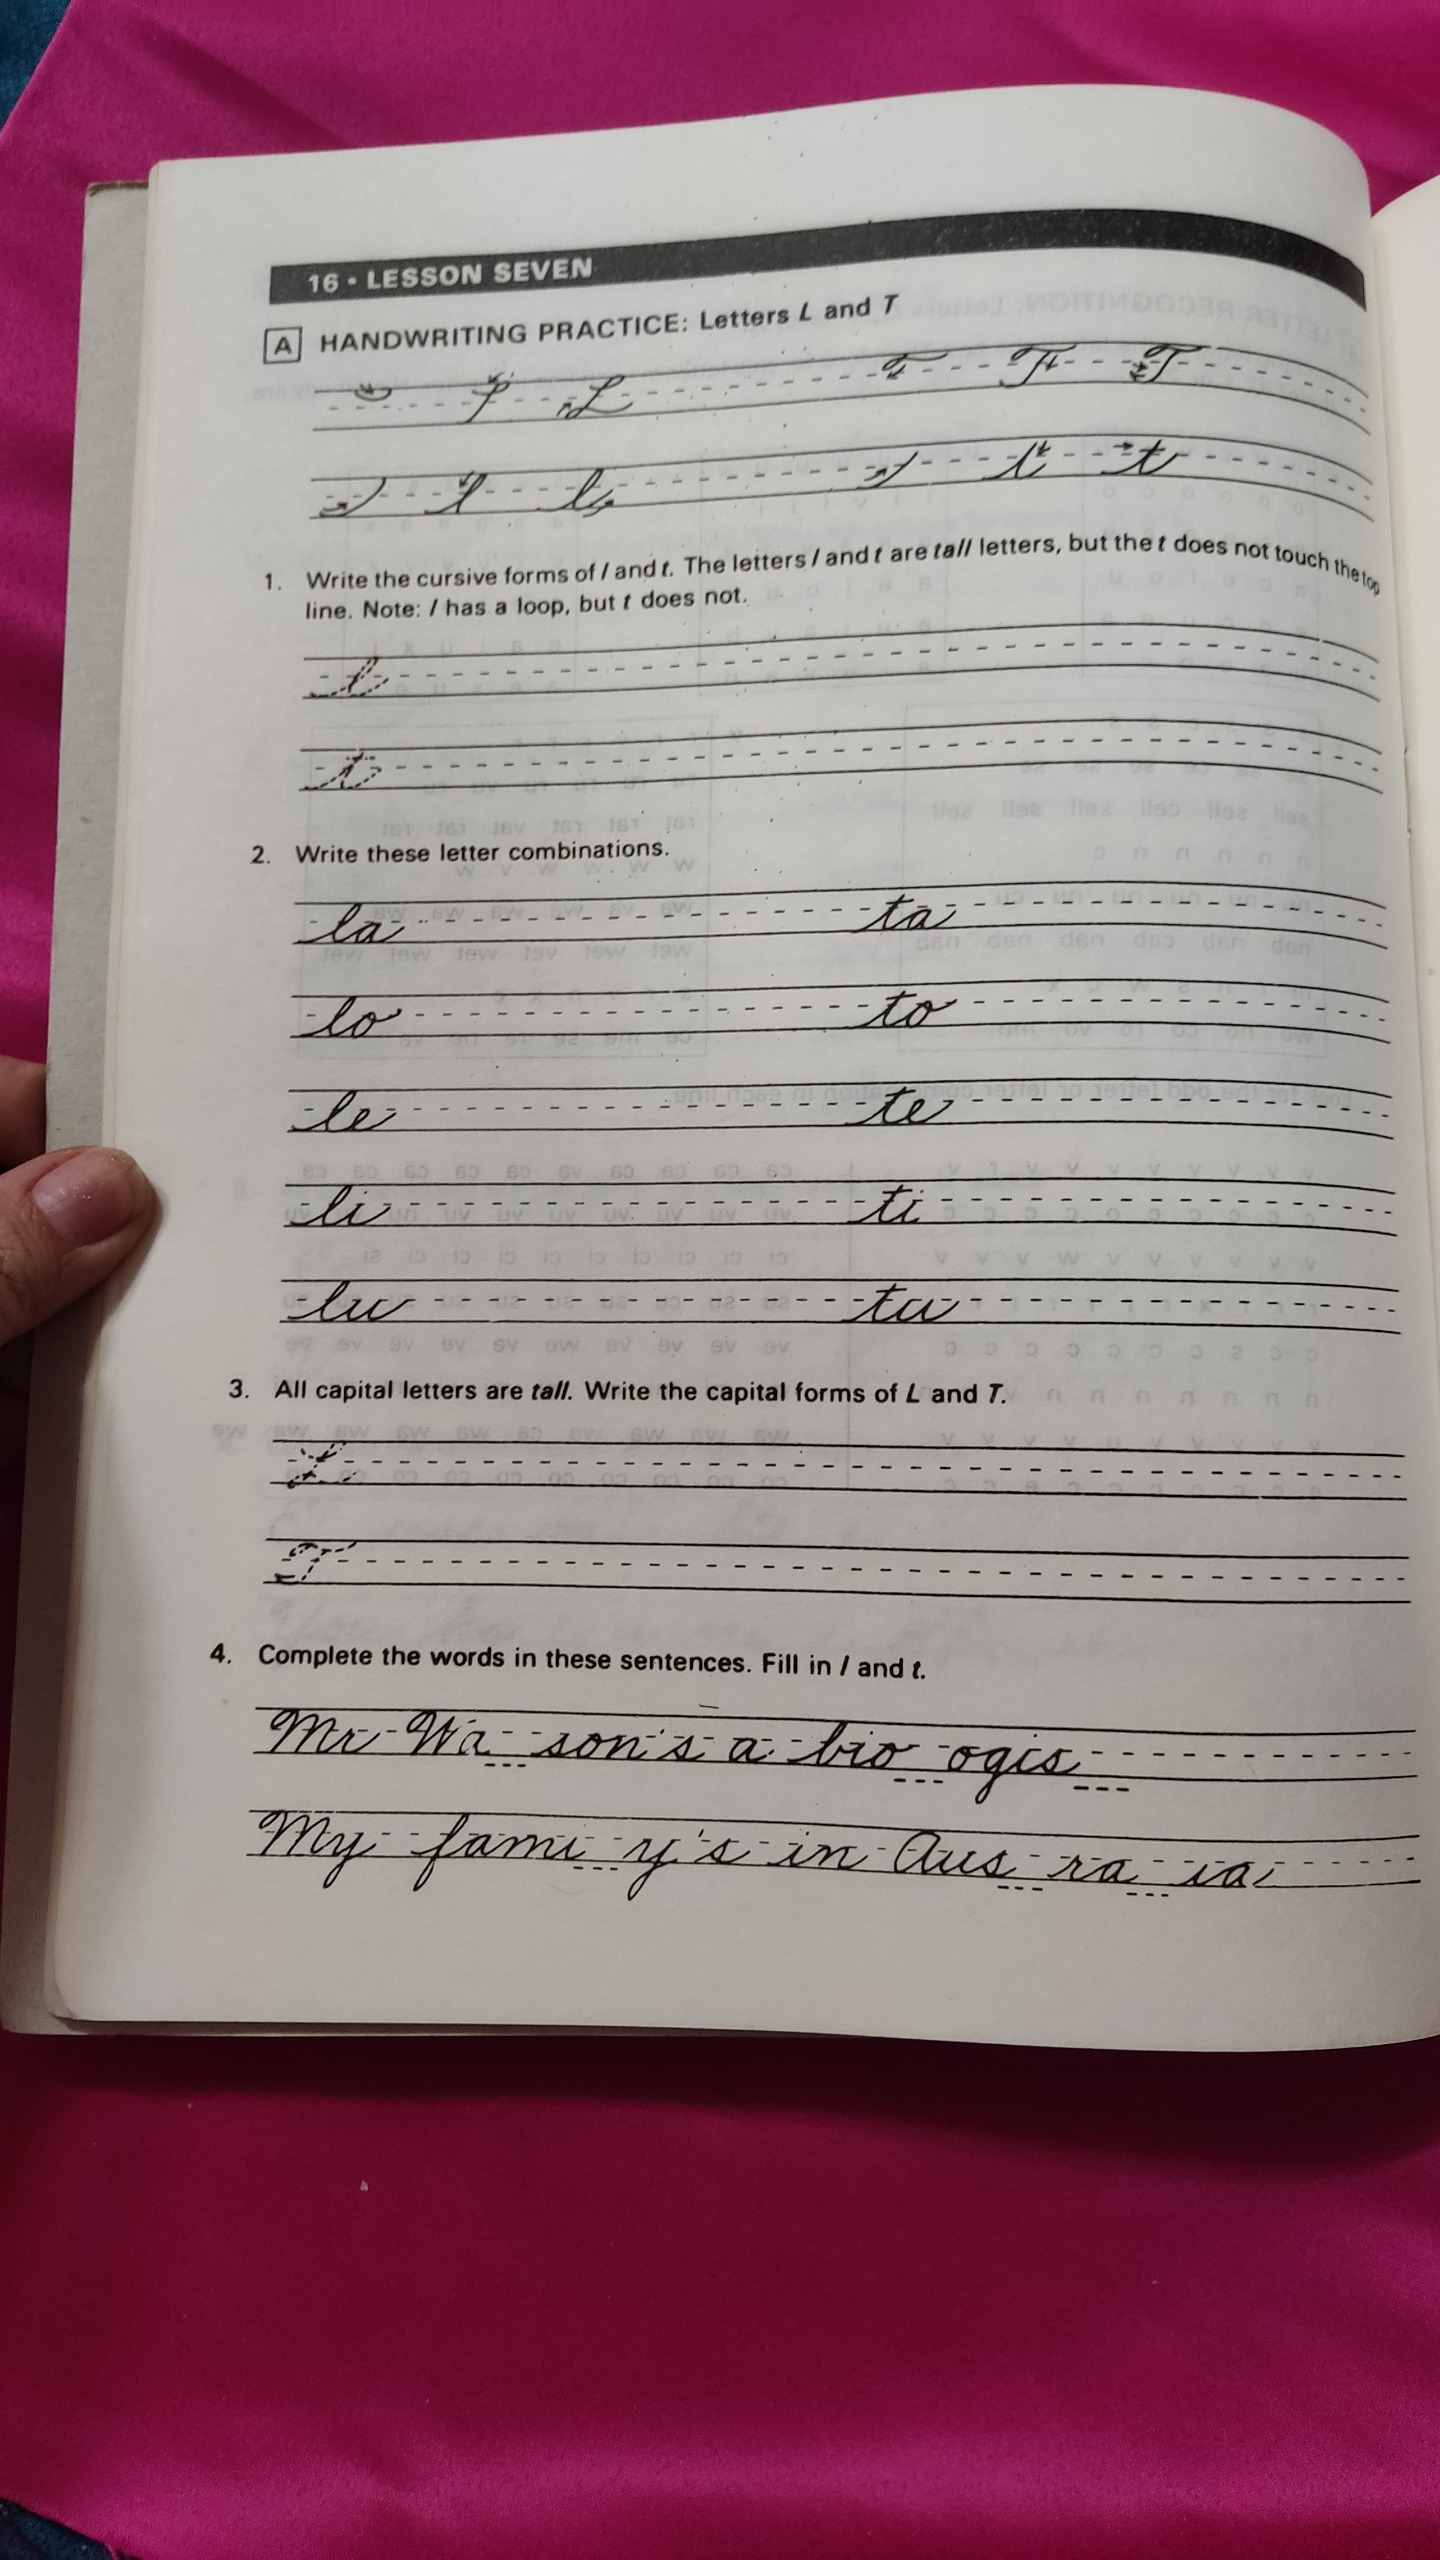 16 • LESSON SEVEN
A HANDWRITING PRACTICE: Letters L and T
L L T T T
l l l t t t
1. Write the cursive forms of l and t. The letters l and t are tall letters, but the t does not touch the top
line. Note: l has a loop, but t does not.
l
t
2. Write these letter combinations.
la ta
lo to
le te
li ti
lu tu
3. All capital letters are tall. Write the capital forms of L and T.
L
T
4. Complete the words in these sentences. Fill in l and t.
Mr Wa___son's a bio___ogis___
My fami___y's in Aus___ra___ia.